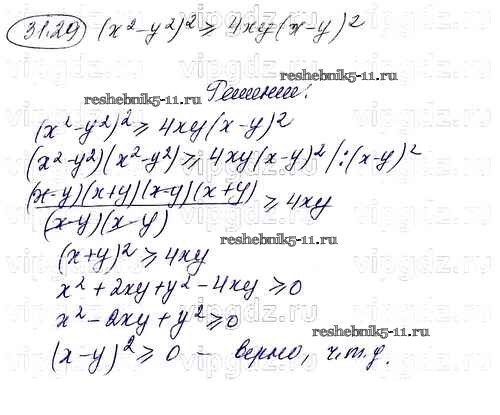 31.29 (x² - y²)² ≥ 4xy(x-y)²
reshebnik5-11.ru
Решение:
(x² - y²)² ≥ 4xy(x-y)²
(x² - y²)(x² - y²) ≥ 4xy(x-y)² /:(x-y)²
(x-y)(x+y)(x-y)(x+y)
(x-y)(x-y)
≥ 4xy
(x+y)² ≥ 4xy
reshebnik5-11.ru
x² + 2xy + y² - 4xy ≥ 0
x² - 2xy + y² ≥ 0
reshebnik5-11.ru
(x-y)² ≥ 0 - верно, ч.т.д.
vipgdz.ru